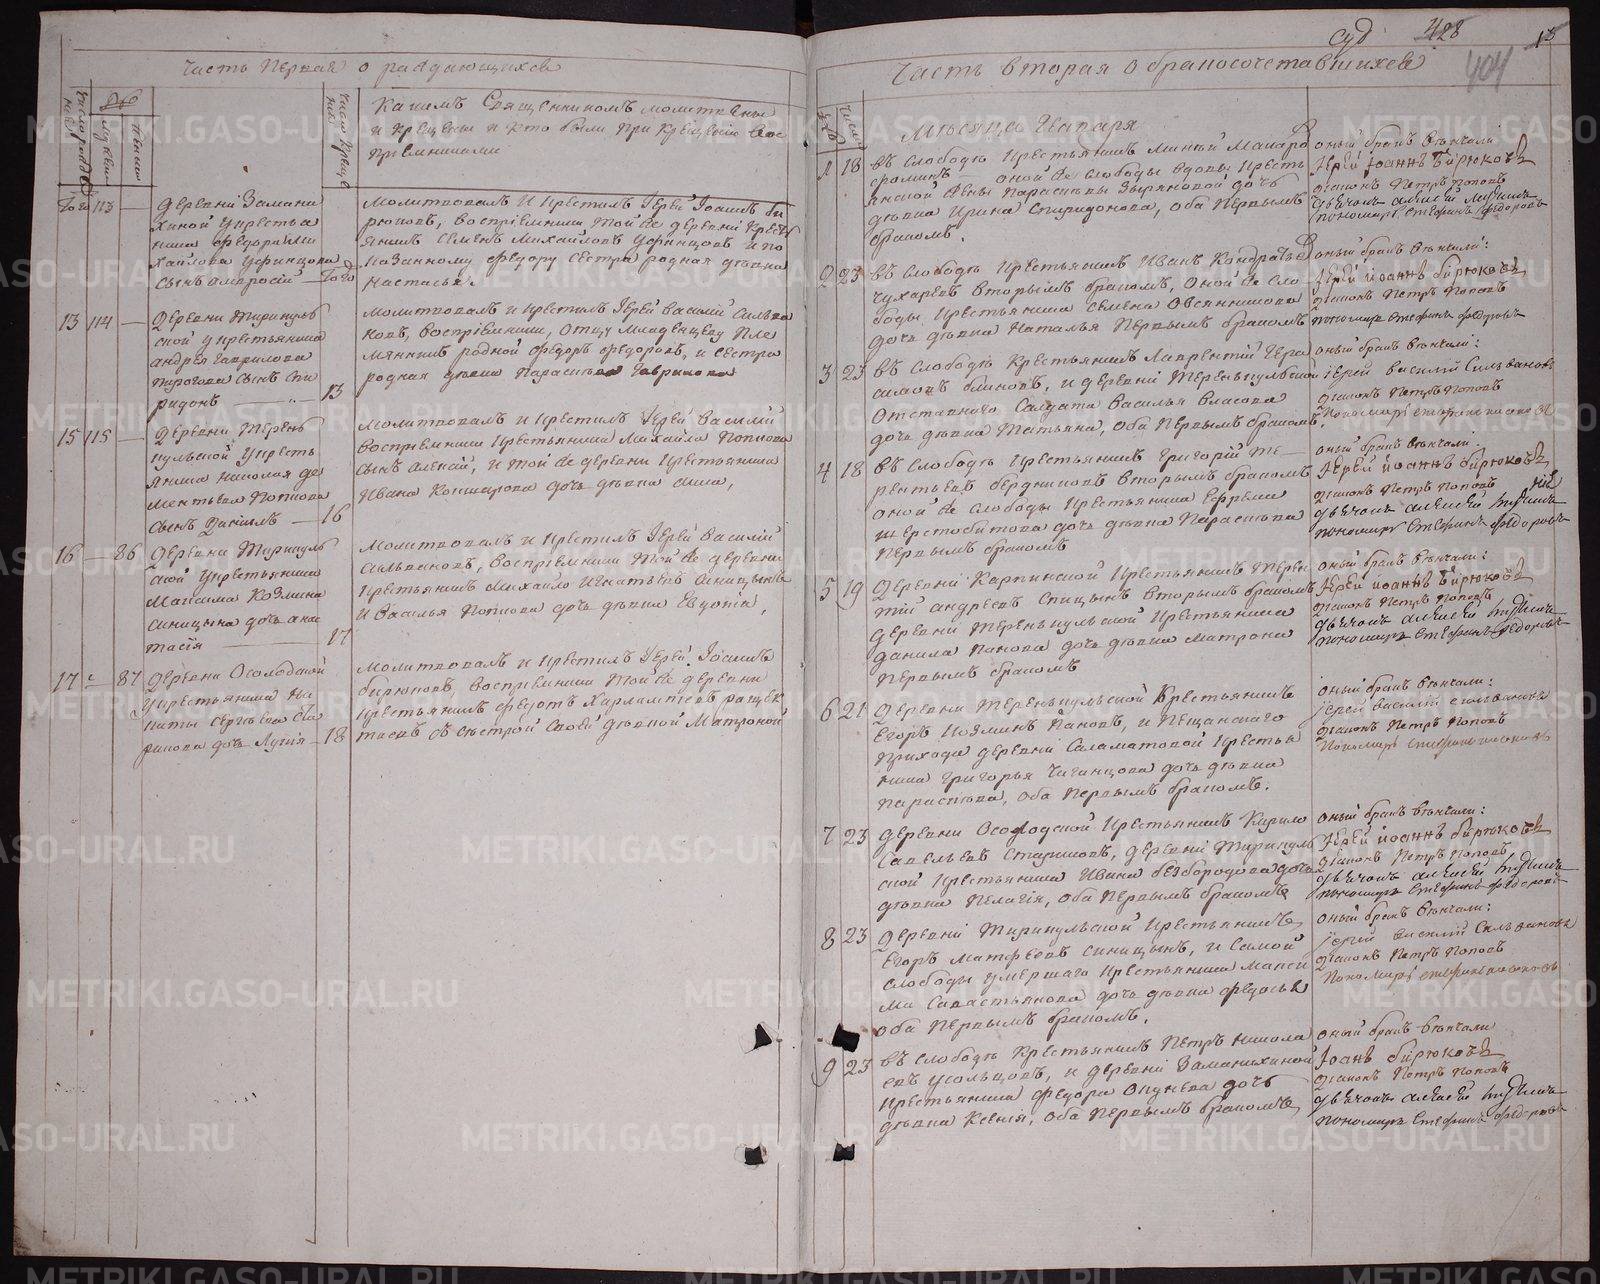 Часть первая о раждающихся
Какимъ Священникомъ молитвены
и крещены и кто были при крещеніи вос
пріемниками
Того 113 —
деревни Замани
хиной у крестья
нина Федора Ми
хайлова
сынъ Амвросій — Того
молитвовалъ и крестилъ Іерей Іоаннъ Би
рюковъ, воспріемники той же деревни кресть
янинъ Семенъ Михайловъ и по
казанному Федору сестра родная девка
Настасья.
13 114 —
деревни Тирикуль
ской у крестьянина
андрея Гаврилова
Пирогова сынъ Спи
ридонъ — 13
молитвовалъ и крестилъ Іерей Василій Сильва
новъ, воспріемники, отцу младенцеву пле
мянникъ родной Федоръ Федоровъ, и сестра
родная девка Параскева Гаврилова
15 115 —
деревни Терень
кульской у кресть
янина Николая де
ментьева Попкова
сынъ Василъ — 16
молитвовалъ и крестилъ Іерей Василій
воспріемники крестьянина Михайла Попкова
сынъ Алексѣй, и той же деревни крестьянина
Ивана дочь дѣвка Анна,
16 — 86
деревни Тирикуль
ской у крестьянина
Максима Козмина
Синицына дочь ана
стасія — 17
молитвовалъ и крестилъ Іерей Василій
Сильвановъ, воспріемники той же деревни
крестьянинъ Михайло Игнатьевъ Синицынъ
и Василья Попкова дочь дѣвка Евдокія,
17 — 87
деревни Осолодской
у крестьянина Ни
киты Сергѣева Ста
рикова дочь Лукія — 18
молитвовалъ и крестилъ Іерей Іоаннъ
Бирюковъ, воспріемники той же деревни
крестьянинъ Федотъ Харлампіевъ Ращек
таевъ съ сестрой своей дѣвкой Матроной
428
13
404
Часть вторая о бракосочетавшихся
Мѣсяца Генваря
1 18 въ слободѣ крестьянинъ Минѣй Макаро
— оной же слободы вдовы кресть
янской жены Параскевы Зыряновой дочь
дѣвка Ирина Спиридонова, оба первымъ
бракомъ.
оный бракъ вѣнчали
Іерей Іоаннъ Бирюковъ
діаконъ Петръ Поповъ
дьячокъ Алексѣй
пономарь Стефанъ Федоровъ
2 23 въ слободѣ крестьянинъ Иванъ Кондратьев
Чухаревъ вторымъ бракомъ, оной же сло
боды крестьянина Семена Овсянникова
дочь дѣвка Наталья первымъ бракомъ
оный бракъ вѣнчали:
Іерей Иоаннъ Бирюковъ
діаконъ Петръ Поповъ
пономарь Стефанъ Федоровъ
3 23 въ слободѣ крестьянинъ Лаврентій Гера
симовъ Блиновъ, и деревни Теренькульской
отставнаго Салдата Василья Власова
дочь дѣвка Татьяна, оба первымъ бракомъ.
оный бракъ вѣнчали:
іерей Василій Сильвановъ
діаконъ Петръ Поповъ
Пономарь
4 18 въ слободѣ крестьянинъ Григорій Те—
рентьевъ Бердниковъ вторымъ бракомъ
оной же слободы крестьянина Ефрема
Шерстобитова дочь дѣвка Параскева
первымъ бракомъ
оный бракъ вѣнчали:
Іерей Иоаннъ Бирюковъ
діаконъ Петръ Поповъ
дьячокъ Алексѣй
пономарь Стефанъ Федоровъ
5 19 деревни Карпинской крестьянинъ Терен
тій Андреевъ Спицынъ вторымъ бракомъ
деревни Теренькульской крестьянина
Данила Панова дочь дѣвка Матрона
первымъ бракомъ
оный бракъ вѣнчали:
Іерей Иоаннъ Бирюковъ
діаконъ Петръ Поповъ
дьячокъ Алексѣй
пономарь Стефанъ Федоровъ
6 21 деревни Теренькульской крестьянинъ
Егоръ Козминъ Пановъ, и Пещанскаго
прихода деревни Саламатовой крестья
нина Григорья Чаганцова дочь дѣвка
Параскева, оба первымъ бракомъ.
оный бракъ вѣнчали:
іерей Василій Сильвановъ
діаконъ Петръ Поповъ
Пономарь
7 23 деревни Осолодской крестьянинъ Кирило
Савельевъ Стариковъ, деревни Тирикуль
ской крестьянина Ивана Безбородова дочь
дѣвка Пелагія, оба первымъ бракомъ
оный бракъ вѣнчали:
Іерей Иоаннъ Бирюковъ
діаконъ Петръ Поповъ
дьячокъ Алексѣй
пономарь Стефанъ Федоровъ
8 23 деревни Тирикульской крестьянинъ
Егоръ Матфеевъ Синицынъ, и самой
слободы умершаго крестьянина Макси
ма Савастьянова дочь дѣвка Федосья
оба первымъ бракомъ.
оный бракъ вѣнчали:
іерей Василій Сильвановъ
діаконъ Петръ Поповъ
Пономарь
9 23 въ слободѣ крестьянинъ Петръ Никола
евъ Усольцовъ, и деревни Заманихиной
крестьянина Федора Опунева дочь
дѣвка Ксенія, оба первымъ бракомъ
оный бракъ вѣнчали
Іоаннъ Бирюковъ
діаконъ Петръ Поповъ
дьячокъ Алексѣй
пономарь Стефанъ Федоровъ